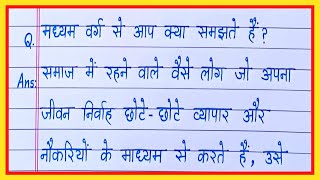 Q. मध्यम वर्ग से आप क्या समझते हैं ?
Ans: समाज में रहने वाले वैसे लोग जो अपना
जीवन निर्वाह छोटे-छोटे व्यापार और
नौकरियों के माध्यम से करते हैं, उसे